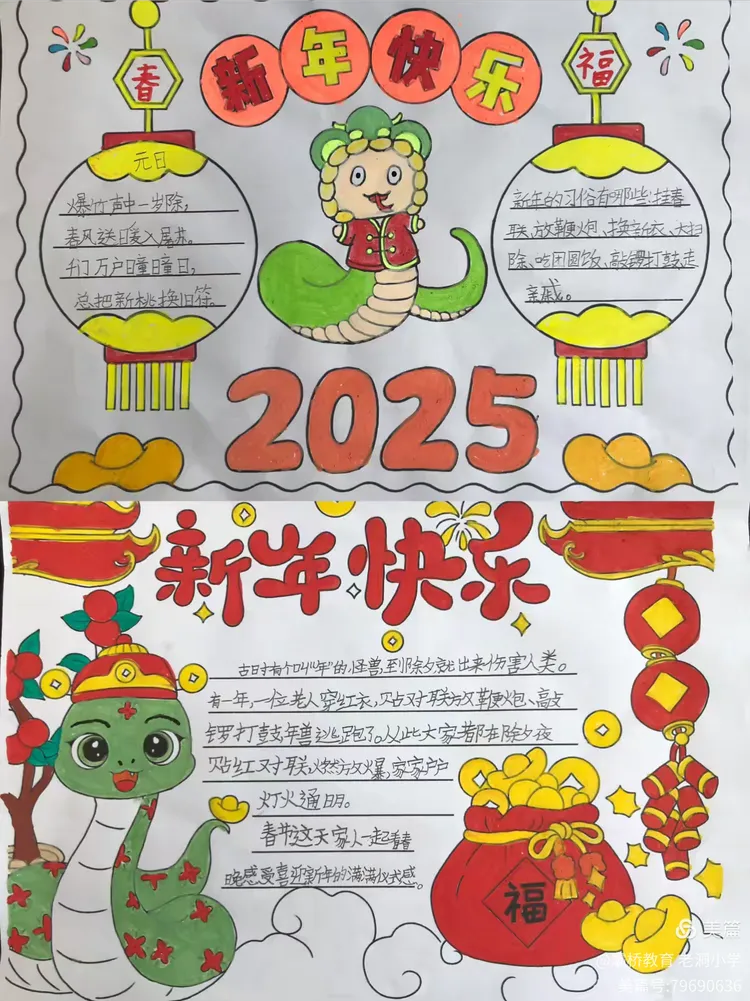 新年快乐
春
福
元日
爆竹声中一岁除,
春风送暖入屠苏。
千门万户曈曈日,
总把新桃换旧符。
新年的习俗有哪些:挂春
联、放鞭炮、换新衣、大扫
除、吃团圆饭、敲锣打鼓走
亲戚。
2025
新年快乐
古时有个叫“年”的怪兽,到除夕就出来伤害人类。
有一年,一位老人穿红衣,贴对联放鞭炮、敲
锣打鼓年兽逃跑了。从此大家都在除夕夜
贴红对联燃放爆,家家户户
灯火通明。
春节这天家人一起看春
晚感受喜迎新年的满满仪式感。
福
美篇
桥教育 老洞小学
美篇号:79690636